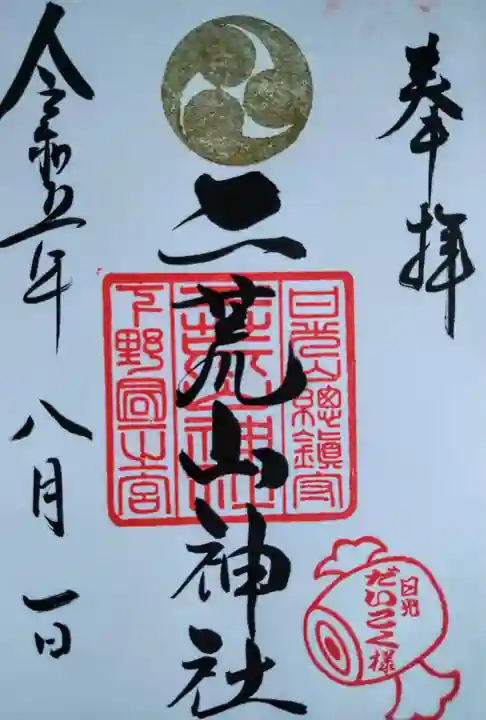 奉拝
日光山總鎮守
二荒山神社
下野國一之宮
令和五年八月一日
日光
だいこく様